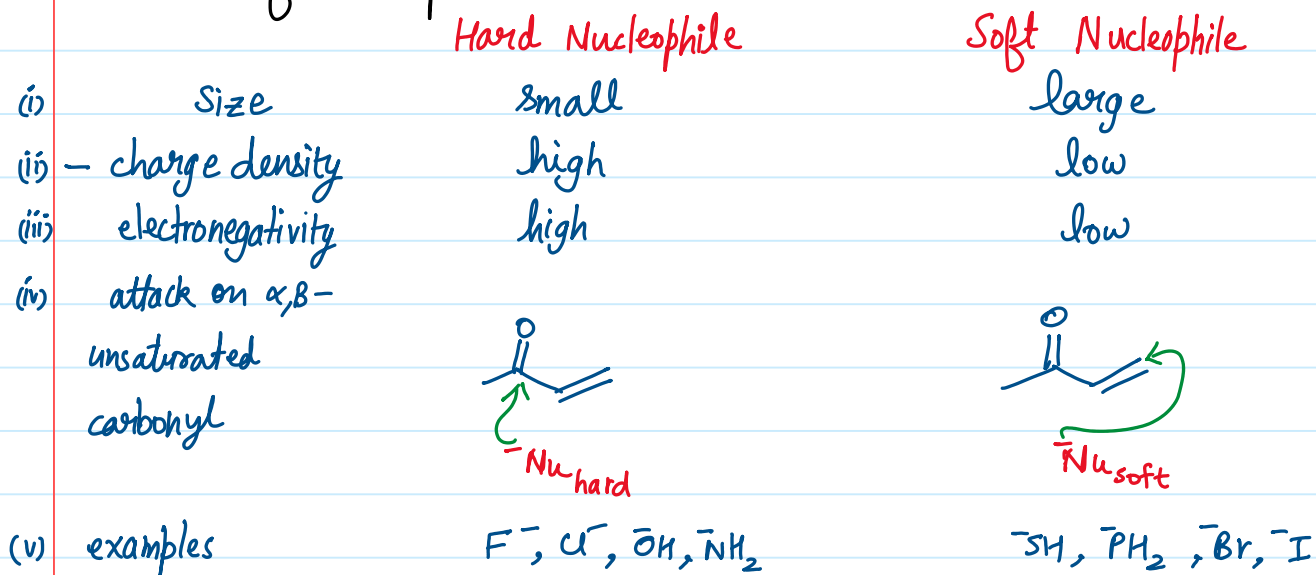 Hard Nucleophile Soft Nucleophile
(i) Size small large
(ii) – charge density high low
(iii) electronegativity high low
(iv) attack on α,β–
unsaturated
carbonyl
O O
⁻Nu hard ⁻Nu soft
(v) examples F⁻, Cl⁻, ⁻OH, ⁻NH₂ ⁻SH, ⁻PH₂, ⁻Br, ⁻I